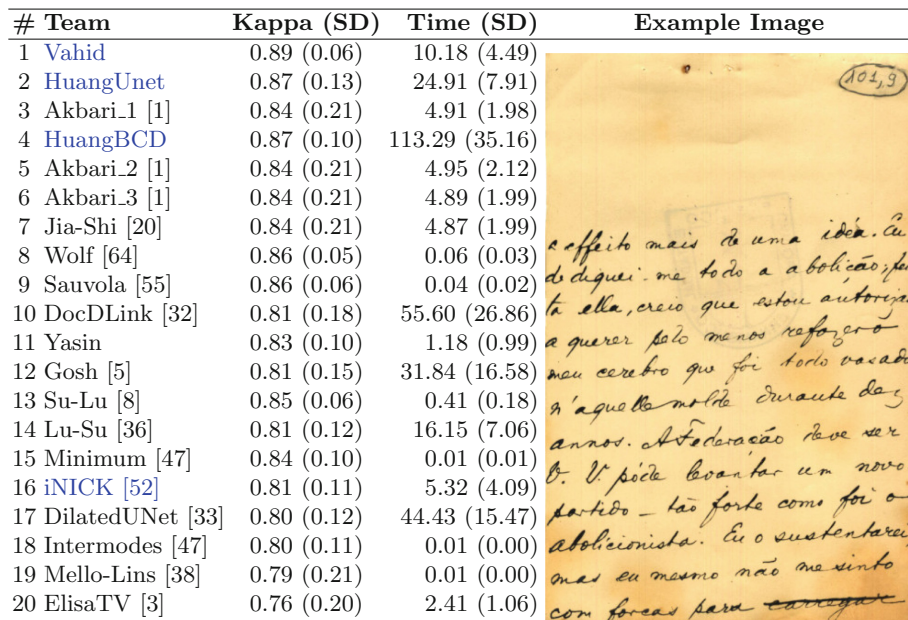 # Team Kappa (SD) Time (SD) Example Image
1 Vahid 0.89 (0.06) 10.18 (4.49)
2 HuangUnet 0.87 (0.13) 24.91 (7.91)
3 Akbari_1 [1] 0.84 (0.21) 4.91 (1.98)
4 HuangBCD 0.87 (0.10) 113.29 (35.16)
5 Akbari_2 [1] 0.84 (0.21) 4.95 (2.12)
6 Akbari_3 [1] 0.84 (0.21) 4.89 (1.99)
7 Jia-Shi [20] 0.84 (0.21) 4.87 (1.99)
8 Wolf [64] 0.86 (0.05) 0.06 (0.03)
9 Sauvola [55] 0.86 (0.06) 0.04 (0.02)
10 DocDLink [32] 0.81 (0.18) 55.60 (26.86)
11 Yasin 0.83 (0.10) 1.18 (0.99)
12 Gosh [5] 0.81 (0.15) 31.84 (16.58)
13 Su-Lu [8] 0.85 (0.06) 0.41 (0.18)
14 Lu-Su [36] 0.81 (0.12) 16.15 (7.06)
15 Minimum [47] 0.84 (0.10) 0.01 (0.01)
16 iNICK [52] 0.81 (0.11) 5.32 (4.09)
17 DilatedUNet [33] 0.80 (0.12) 44.43 (15.47)
18 Intermodes [47] 0.80 (0.11) 0.01 (0.00)
19 Mello-Lins [38] 0.79 (0.21) 0.01 (0.00)
20 ElisaTV [3] 0.76 (0.20) 2.41 (1.06)
101,9
effeito mais de uma idéa. Eu
dediquei-me todo a abolicão;
ella, creio que estou
a querer pelo menos refazer o
meu cerebro que foi todo vasado
n'aquelle molde durante dez
annos. A Federacão deve ser
V. póde levantar um novo
partido - tão forte como foi o
abolicionista. Eu o sustentarei
mas eu mesmo não me sinto
com forcas para carregar